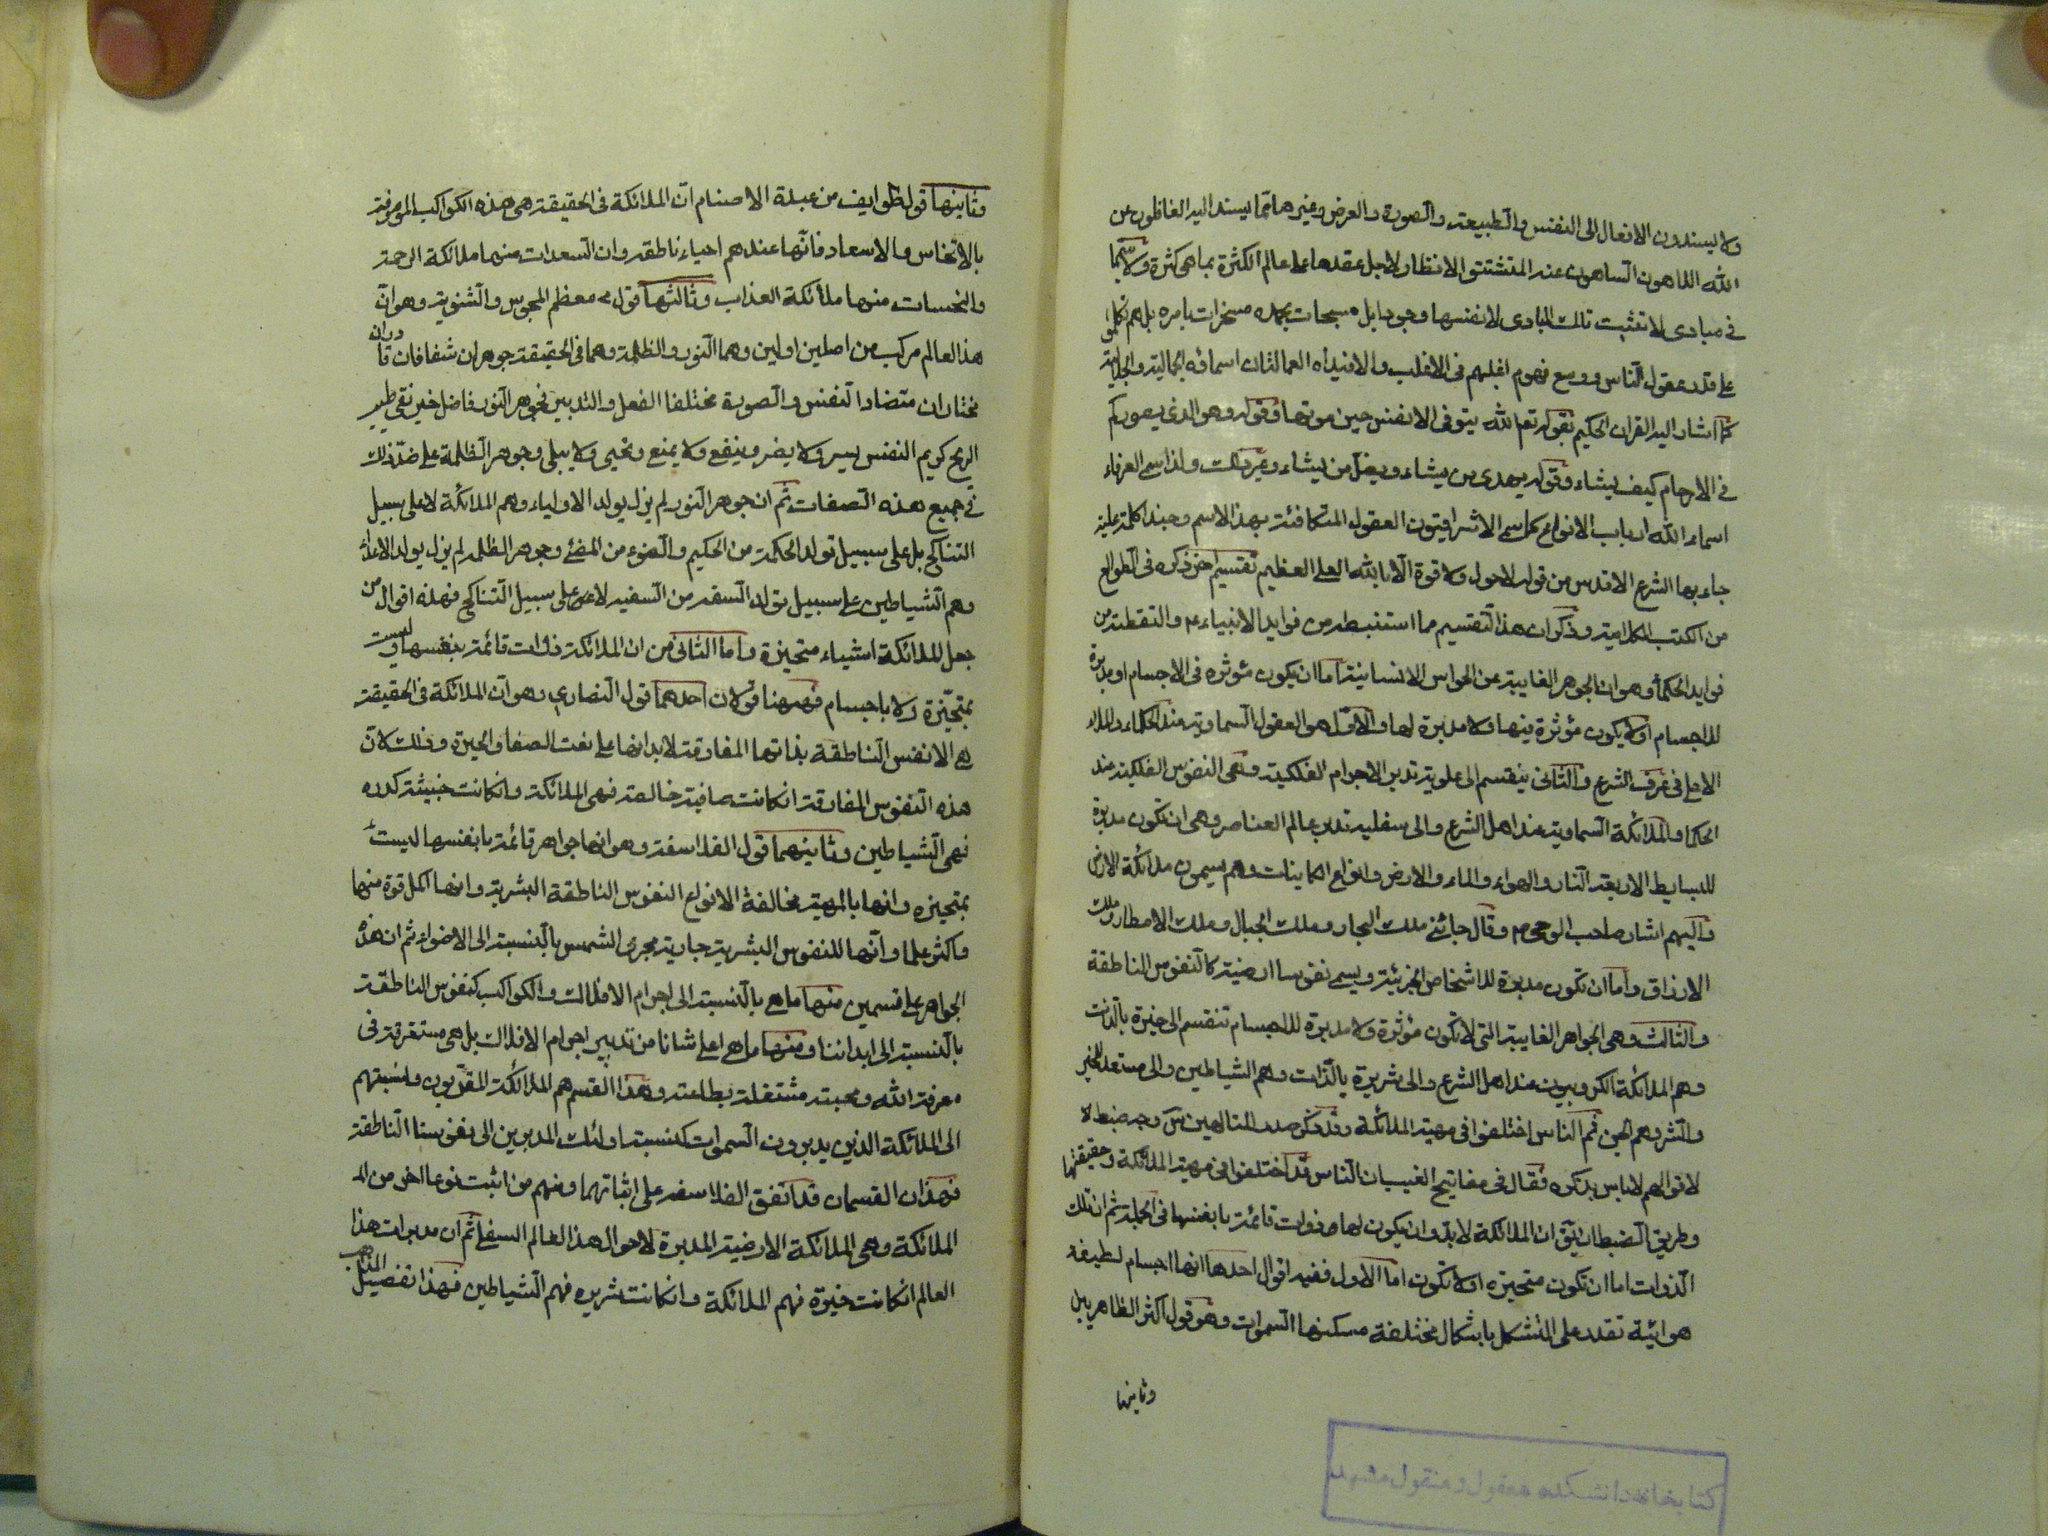 ولا يسندون الافعال الى النفس والطبيعة والصورة والعرض وغيرها مما يسند اليه الغافلون عن
الله اللاهون الساهون عند المتشتتوا الانظار لاجل عقدها على عالم الكثرة بما هى كثرة ولا سيما
فى مبادى لا تثبت تلك المبادى لانفسها وجودا بل مسبحات بحمده مسخرات بامره بل هم تكلموا
على قدر عقول الناس ووسع فهوم اغلبهم فى الاغلب والا فيداه العمالتان اسمائه الجمالية والجلالية
كما اشار اليه القران الحكيم بقوله تعم الله يتوفى الانفس حين موتها وقوله وهو الذى يصوركم
فى الارحام كيف يشاء وقوله يهدى من يشاء ويضل من يشاء وغير ذلك ولذا سمى العرفاء
اسماء الله ارباب الانواع كما سمى الاشراقيون العقول المتكافئة بهذا الاسم وحبذا كلمة علية
جاء بها الشرع الاقدس من قوله لا حول ولا قوة الا بالله العلى العظيم تقسيم اخر ذكره فى الطوالع
من الكتب الكلامية وذكر ان هذا التقسيم مما استنبطه من فوايد الانبياء ع والتقطته من
فوايد الحكماء وهو ان الجواهر الغايبة عن الحواس الانسانية اما ان يكون مؤثرة فى الاجسام او مدبرة
للاجسام او لا يكون مؤثرة فيها ولا مدبرة لها والاول هو العقول السماوية عند الحكماء والملاء
الاعلى فى عرف الشرع والثانى ينقسم الى علوية تدبر الاجرام الفلكية وهى النفوس الفلكية عند
الحكما والملائكة السماوية عند اهل الشرع والى سفلية تدبر عالم العناصر وهى ان تكون مدبرة
للبسايط الاربعة النار والهواء والماء والارض وانواع الكاينات وهم يسمون ملائكة الارض
واليهم اشار صاحب الوحى ص وقال جائنى ملك البحار وملك الجبال وملك الامطار وملك
الارزاق واما ان تكون مدبرة للاشخاص الجزئية ويسمى نفوسا ارضية كالنفوس الناطقة
والثالث وهى الجواهر الغايبة التى لا تكون مؤثرة ولا مدبرة للاجسام تنقسم الى خيرة بالذات
وهم الملائكة الكروبيون عند اهل الشرع والى شريرة بالذات وهم الشياطين والى مستعد للخير
والشر وهم الجن ثم الناس اختلفوا فى مهية الملائكة وقد ذكر صدر المتالهين س وجه ضبط لا
لاقوالهم لا باس بذكره فقال فى مفاتيح الغيب ان الناس قد اختلفوا فى مهية الملائكة وحقيقتها
وطريق الضبط ان يق ان الملائكة لا بد وان يكون لها ذوات قائمة بانفسها فى الجملة ثم ان تلك
الذوات اما ان تكون متحيزه او لا تكون اما الاول ففيه اقوال احدها انها اجسام لطيفة
هوائية تقدر على التشكل باشكال مختلفة مسكنها السموات وهو قول اكثر الظاهريين
وثانيها
كتابخانه دانشكده معقول و منقول مشهد
وثانيها قول طوايف من عبدة الاصنام ان الملائكة فى الحقيقة هى هذه الكواكب الموصوفة
بالانحاس والاسعاد فانها عندهم احياء ناطقة وان السعدات منها ملائكة الرحمة
والنحسات منها ملائكة العذاب وثالثها قول معظم المجوس والثنوية وهو ان
هذا العالم مركب من اصلين اوليين وهما النور والظلمة وهما فى الحقيقة جوهران شفافان قادران
مختاران متضادا النفس والصورة مختلفا الفعل والتدبير فجوهر النور فاضل خير نقى طيب
الريح كريم النفس يسر ولا يضر وينفع ولا يمنع ويحيى ولا يبلى وجوهر الظلمة على ضد ذلك
فى جميع هذه الصفات ثم ان جوهر النور لم يزل يولد الاولياء وهم الملائكة لا على سبيل
التناكح بل على سبيل تولد الحكمة من الحكيم والضوء من المضئ وجوهر الظلمة لم يزل يولد الاعداء
وهم الشياطين على سبيل تولد السفه من السفيه لا على سبيل التناكح فهذه اقوال من
جعل الملائكة اشياء متحيزة واما الثانى من ان الملائكة ذوات قائمة بنفسها وليست
بمتحيزة ولا باجسام فههنا قولان احدهما قول النصارى وهو ان الملائكة فى الحقيقة
هى الانفس الناطقة بذاتها المفارقة لابدانها على نعت الصفا والخيرة وذلك لان
هذه النفوس المفارقة ان كانت صافية خالصة فهى الملائكة وان كانت خبيثة كدره
فهى الشياطين وثانيهما قول الفلاسفة وهو انها جواهر قائمة بانفسها ليست
بمتحيزه وانها بالمهية مخالفة لانواع النفوس الناطقة البشرية وانها اكمل قوة منها
واكثر علما وانها للنفوس البشرية جارية مجرى الشمس بالنسبة الى الاضواء ثم ان هذه
الجواهر على قسمين منها ما هى بالنسبة الى اجرام الافلاك والكواكب كنفوس الناطقة
بالنسبة الى ابداننا ومنها ما هى اعلى شانا من تدبير اجرام الافلاك بل هى مستغرقة فى
معرفة الله ومحبته مشتغلة بطاعته وهذا القسم هم الملائكة المقربون ونسبتهم
الى الملائكة الذين يدبرون السموات كنسبة اولئك المدبرين الى نفوسنا الناطقة
فهذان القسمان قد اتفق الفلاسفه على اثباتهما ومنهم من اثبت نوعا اخر من الم
الملائكة وهى الملائكة الارضية المدبرة لاحوال هذا العالم السفلى ثم ان مدبرات هذا
العالم ان كانت خيرة فهم الملائكة وان كانت شريره فهم الشياطين فهذا تفصيل المذاهب